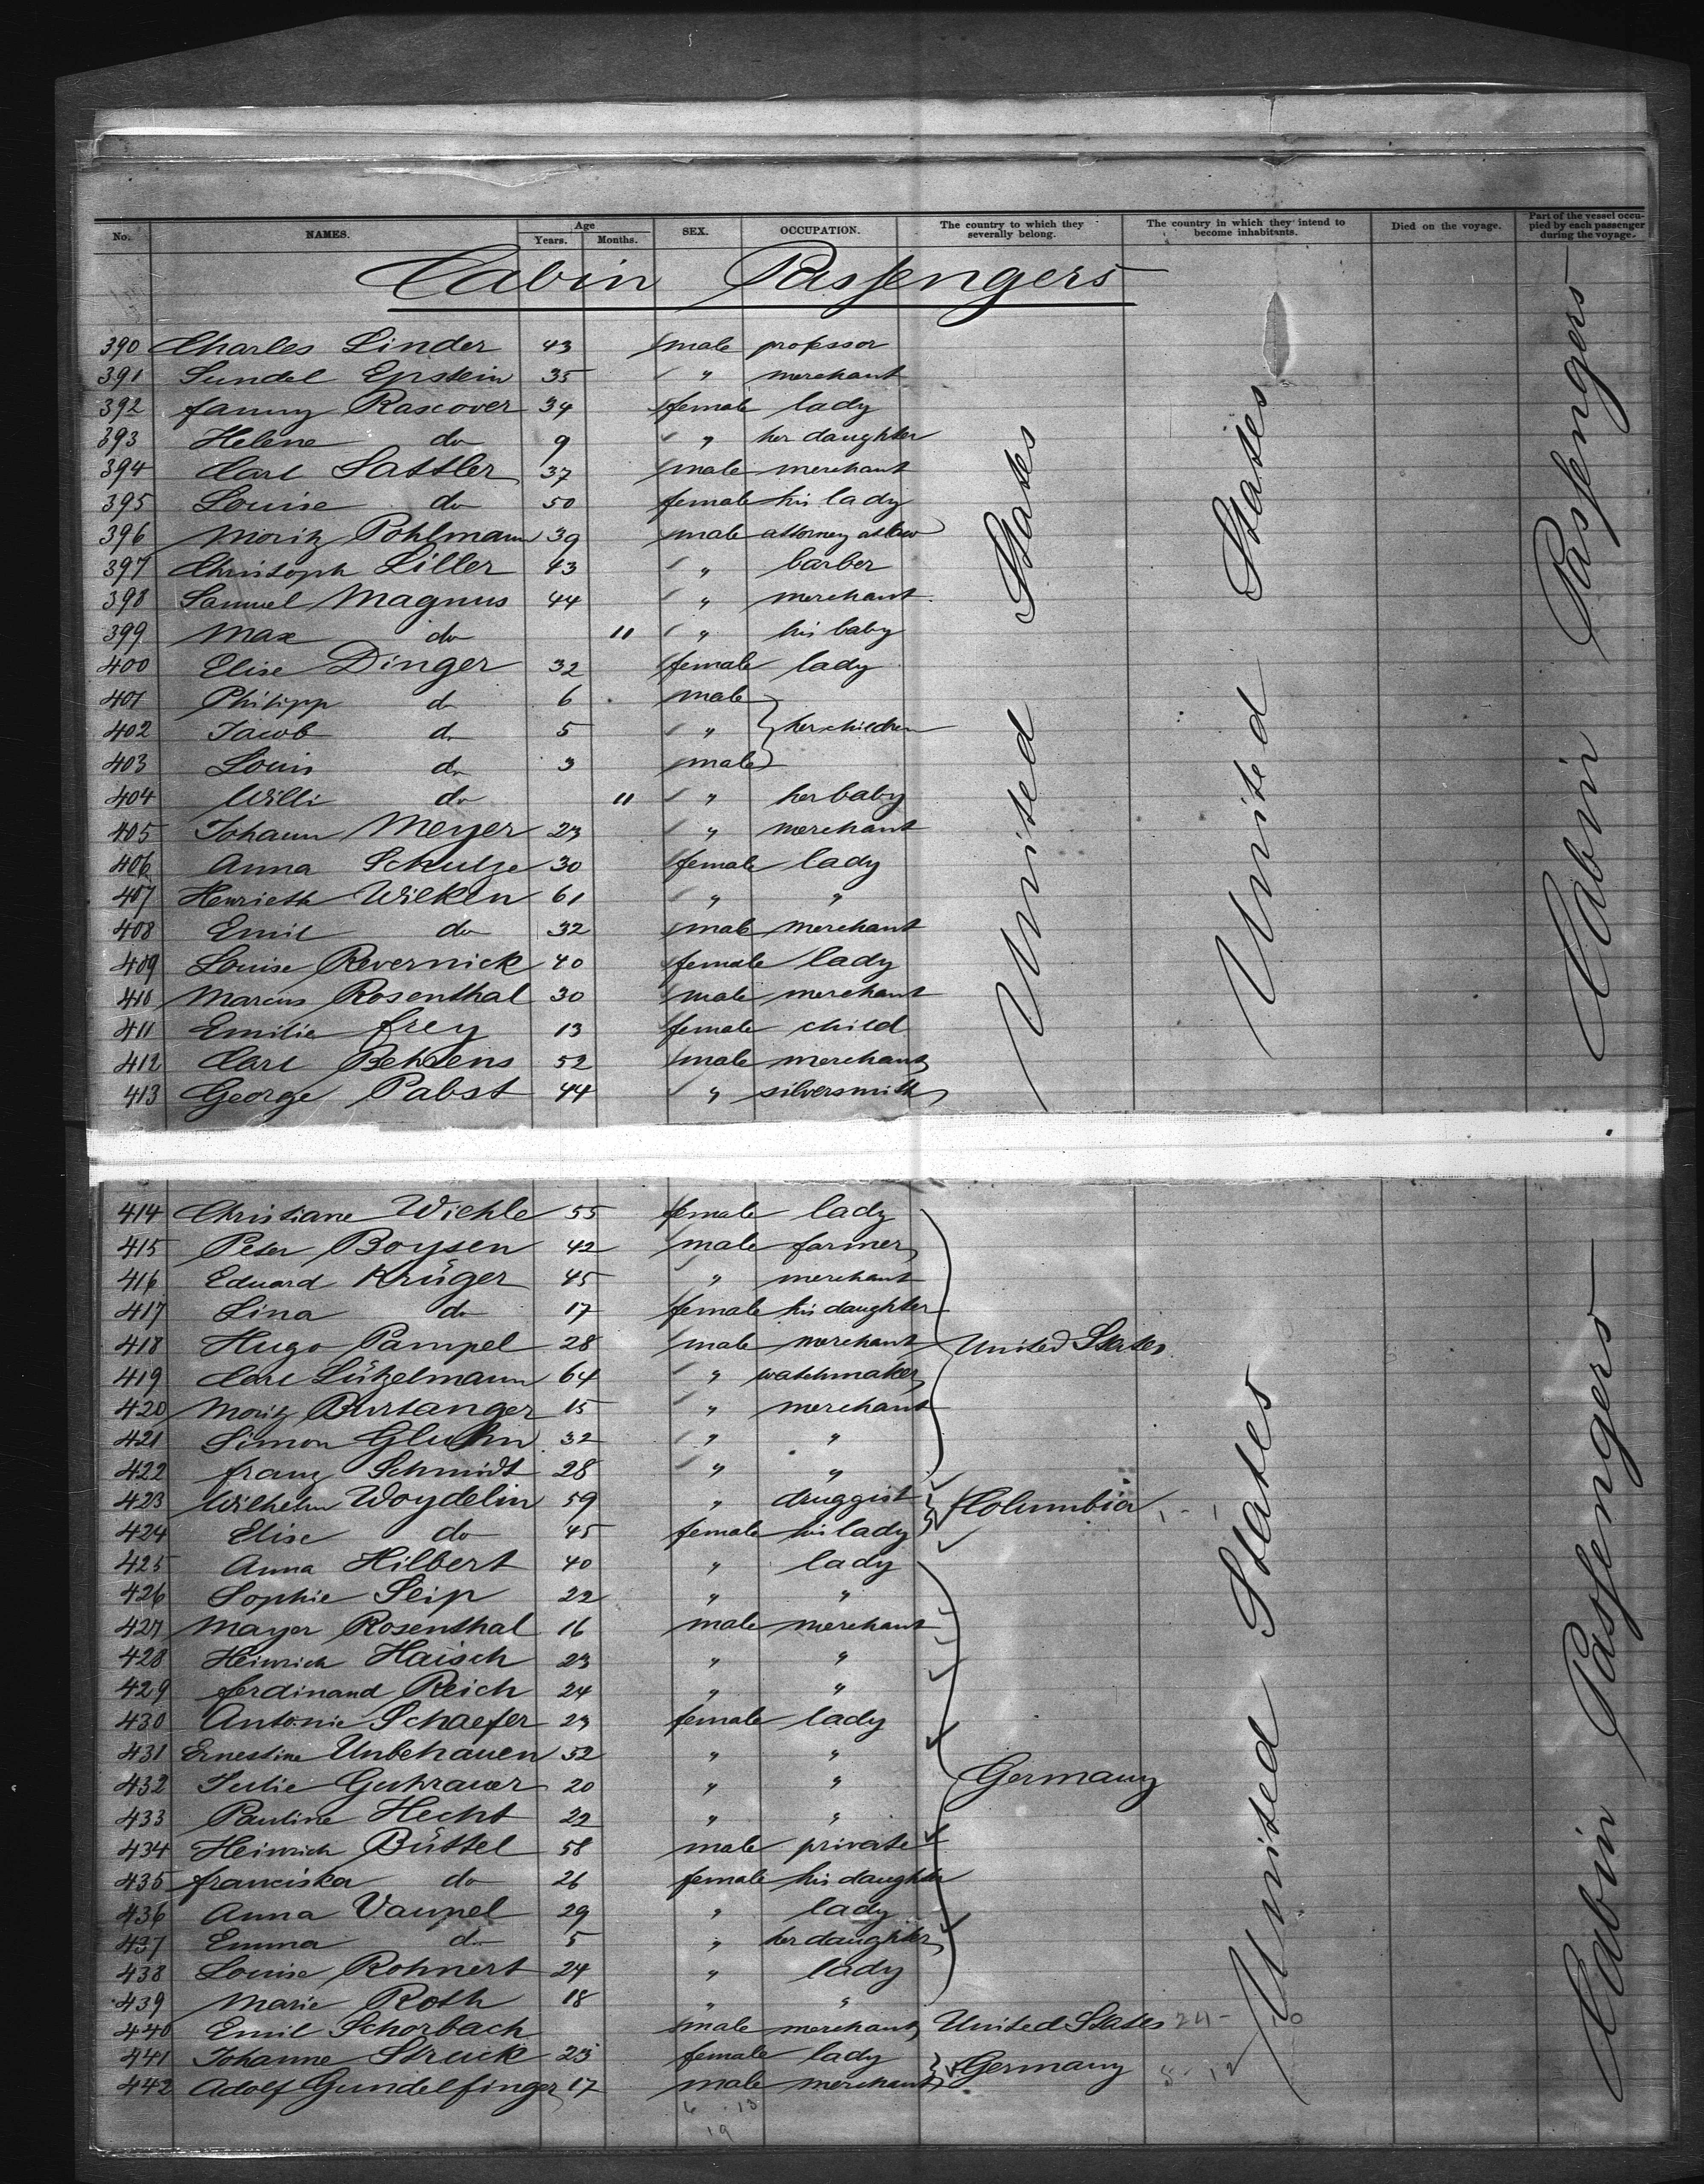 No. NAMES. Age Years. Months. SEX. OCCUPATION. The country to which they severally belong. The country in which they intend to become inhabitants. Died on the voyage. Part of the vessel occupied by each passenger during the voyage.
Cabin Passengers
390 Charles Linder 43 male professor
391 Sundel Epstein 35 " merchant
392 Fanny Rascover 34 female lady
393 Helene do 9 " her daughter
394 Carl Sattler 37 male merchant
395 Louise do 50 female his lady
396 Moritz Pohlmann 39 male attorney at law
397 Christoph Liller 43 " barber
398 Samuel Magnus 44 " merchant
399 Max do 11 " his baby
400 Elise Dinger 32 female lady
401 Philipp do 6 male
402 Jacob do 5 " her children
403 Louis do 3 male
404 Willi do 11 " her baby
405 Johann Meyer 23 " merchant
406 Anna Schulze 30 female lady
407 Henrieth Wilken 61 " "
408 Emil do 32 male merchant
409 Louise Revernick 40 female lady
410 Marcus Rosenthal 30 male merchant
411 Emilie Frey 13 female child
412 Carl Behrens 52 male merchant
413 George Pabst 44 " silversmith
United States
United States
Cabin Passengers
414 Christiane Wiehle 55 female lady
415 Peter Boysen 42 male farmer
416 Eduard Krüger 45 " merchant
417 Lina do 17 female his daughter
418 Hugo Pampel 28 male merchant United States
419 Carl Lützelmann 64 " watchmaker
420 Moritz Burtanger 15 " merchant
421 Simon Gluhn 32 " "
422 Franz Schmidt 28 " "
423 Wilhelm Woydelin 59 " druggist Columbia
424 Elise do 45 female his lady
425 Anna Hilbert 40 " lady
426 Sophie Seip 22 " "
427 Mayer Rosenthal 16 male merchant
428 Heinrich Haisch 23 " "
429 Ferdinand Reich 24 " "
430 Antonie Schaefer 23 female lady
431 Ernestine Unbehauen 52 " "
432 Julie Guhrauer 20 " " Germany
433 Pauline Hecht 22 " "
434 Heinrich Büttel 58 male private
435 Franciska do 26 female his daughter
436 Anna Vaupel 29 " lady
437 Emma do 5 " her daughter
438 Louise Rohnert 24 " lady
439 Marie Roth 18 " "
440 Emil Schorbach male merchant United States 24-
441 Johanne Struck 23 female lady
442 Adolf Gundelfinger 17 male merchant Germany 5-12
6 13
19
United States
Cabin Passengers